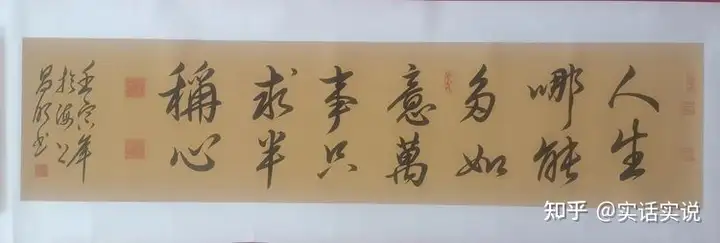 人生
哪能
多如
意萬
事只
求半
稱心
壬寅年
於海上
昌明书
知乎 @实话实说